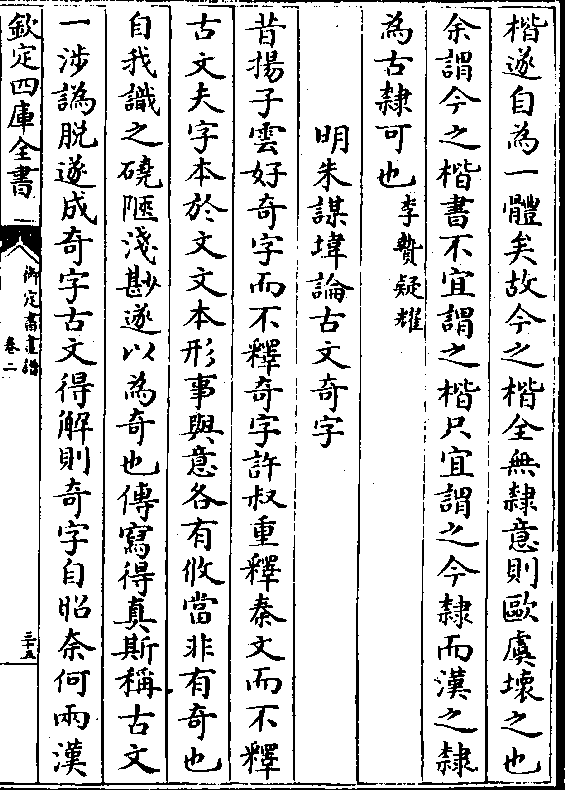 楷遂自為一體矣故今之楷全無隸意則歐虞壞之也
余謂今之楷書不宜謂之楷只宜謂之今隸而漢之隸
為古隸可也李贄疑耀
明朱謀㙔論古文奇字
昔揚子雲好奇字而不釋奇字許叔重釋秦文而不釋
古文夫字本於文文本形事與意各有攸當非有奇也
自我識之磽陋淺尠遂以為奇也傳寫得真斯稱古文
一涉譌脫遂成奇字古文得解則奇字自昭奈何兩漢
欽定四庫全書
御定書畫譜
卷二
三十五